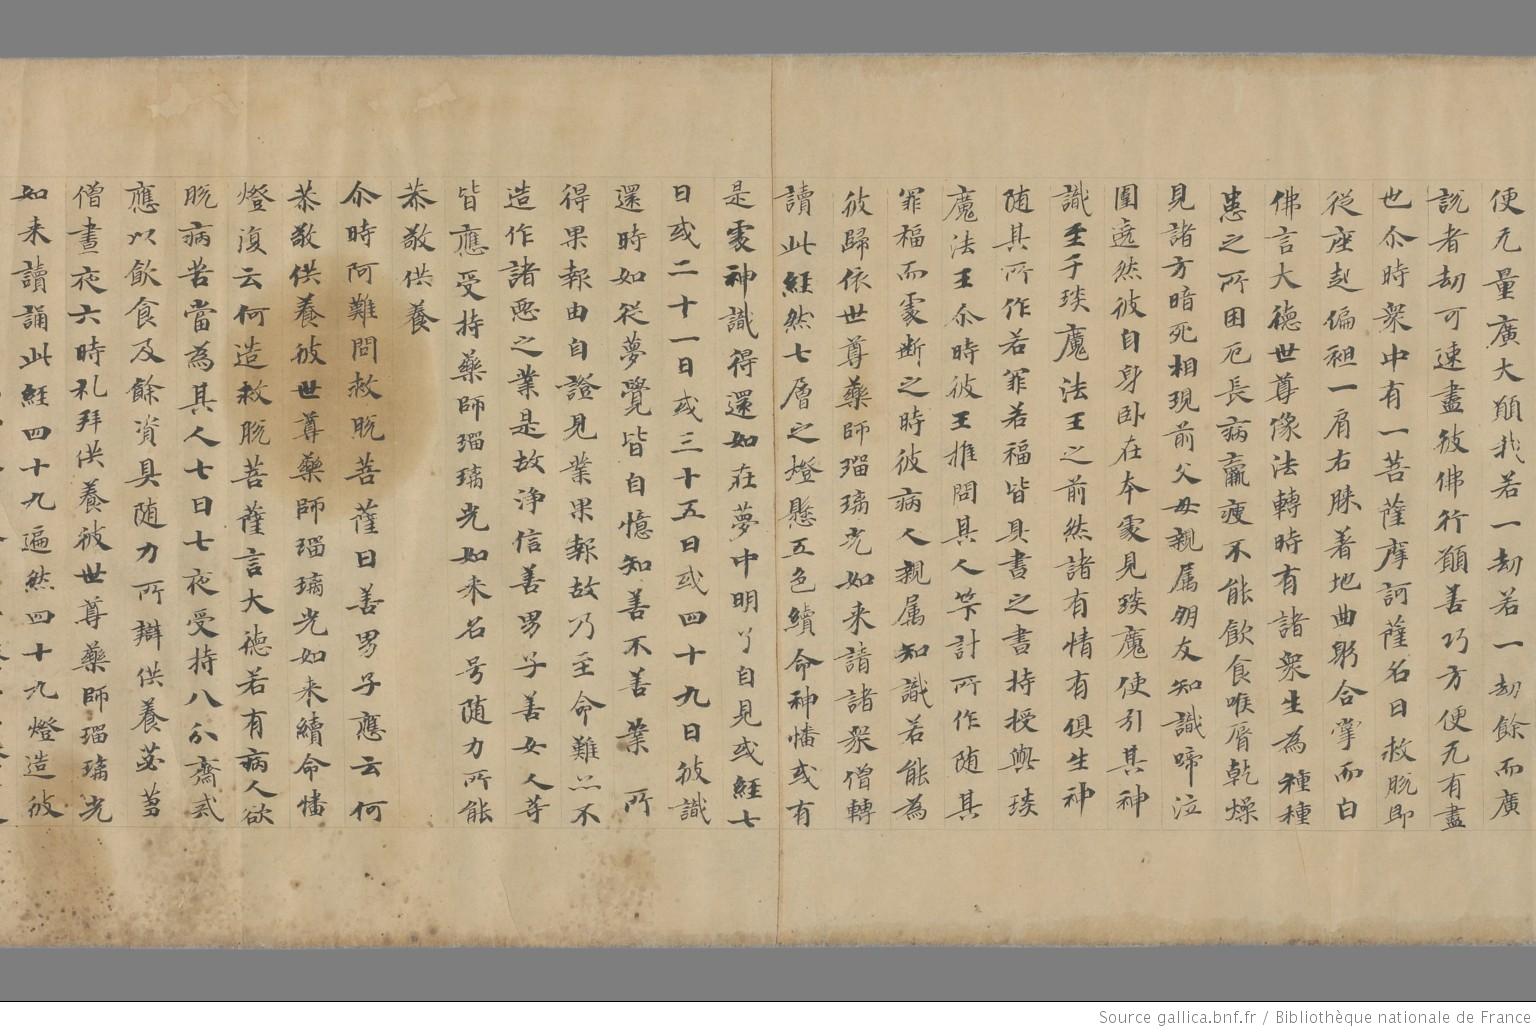 便无量廣大願我若一劫若一劫餘而廣
說者劫可速盡彼佛行願善巧方便无有盡
也尒時衆中有一菩薩摩訶薩名曰救脫即
從座起偏袒一肩右膝著地曲躬合掌而白
佛言大德世尊像法轉時有諸衆生為種種
患之所困厄長病羸瘦不能飲食喉脣乾燥
見諸方暗死相現前父母親属朋友知識啼泣
圍遶然彼自身卧在本處見琰魔使引其神
識至于琰魔法王之前然諸有情有俱生神
随其所作若罪若福皆具書之盡持授與琰
魔法王尒時彼王推問其人筭計所作随其
罪福而處断之時彼病人親属知識若能為
彼歸依世尊藥師瑠璃光如来請諸衆僧轉
讀此經然七層之燈懸五色續命神幡或有
是處神識得還如在夢中明了自見或經七
日或二十一日或三十五日或四十九日彼識
還時如從夢覺皆自憶知善不善業所
得果報由自證見業果報故乃至命難亦不
造作諸惡之業是故淨信善男子善女人等
皆應受持藥師瑠璃光如来名号随力所能
恭敬供養
尒時阿難問救脫菩薩曰善男子應云何
恭敬供養彼世尊藥師瑠璃光如来續命幡
燈復云何造救脫菩薩言大德若有病人欲
脫病苦當為其人七日七夜受持八分齋戒
應以飲食及餘資具随力所辦供養苾蒭
僧晝夜六時礼拜供養彼世尊藥師瑠璃光
如来讀誦此經四十九遍然四十九燈造彼
Source gallica.bnf.fr / Bibliothèque nationale de France